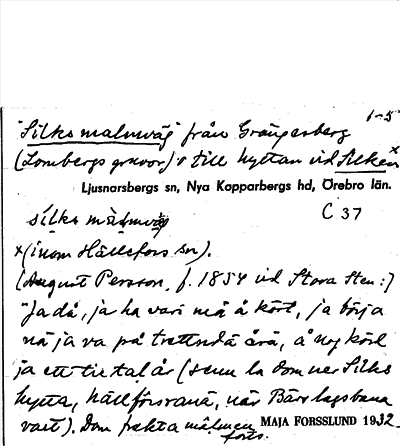 1-5
"Silks malmväg" från Grängesberg
(Lombergs gruvor) till hyttan vid Silken x
Ljusnarsbergs sn, Nya Kopparbergs hd, Örebro län.
silks mälmväg C 37
x (inom Hällefors sn).
(August Persson, f. 1854 vid Stora Sten:)
"Ja då, ja ha vari må å kört, ja börja
nä ja va på trettndä årä, å ny körd
ja ett tietal år (senn la dom ner Silks
hytta, hällförsranä, när Bärslagsbana
vart). Dom frakta mälmen
forts. MAJA FORSSLUND 1932.